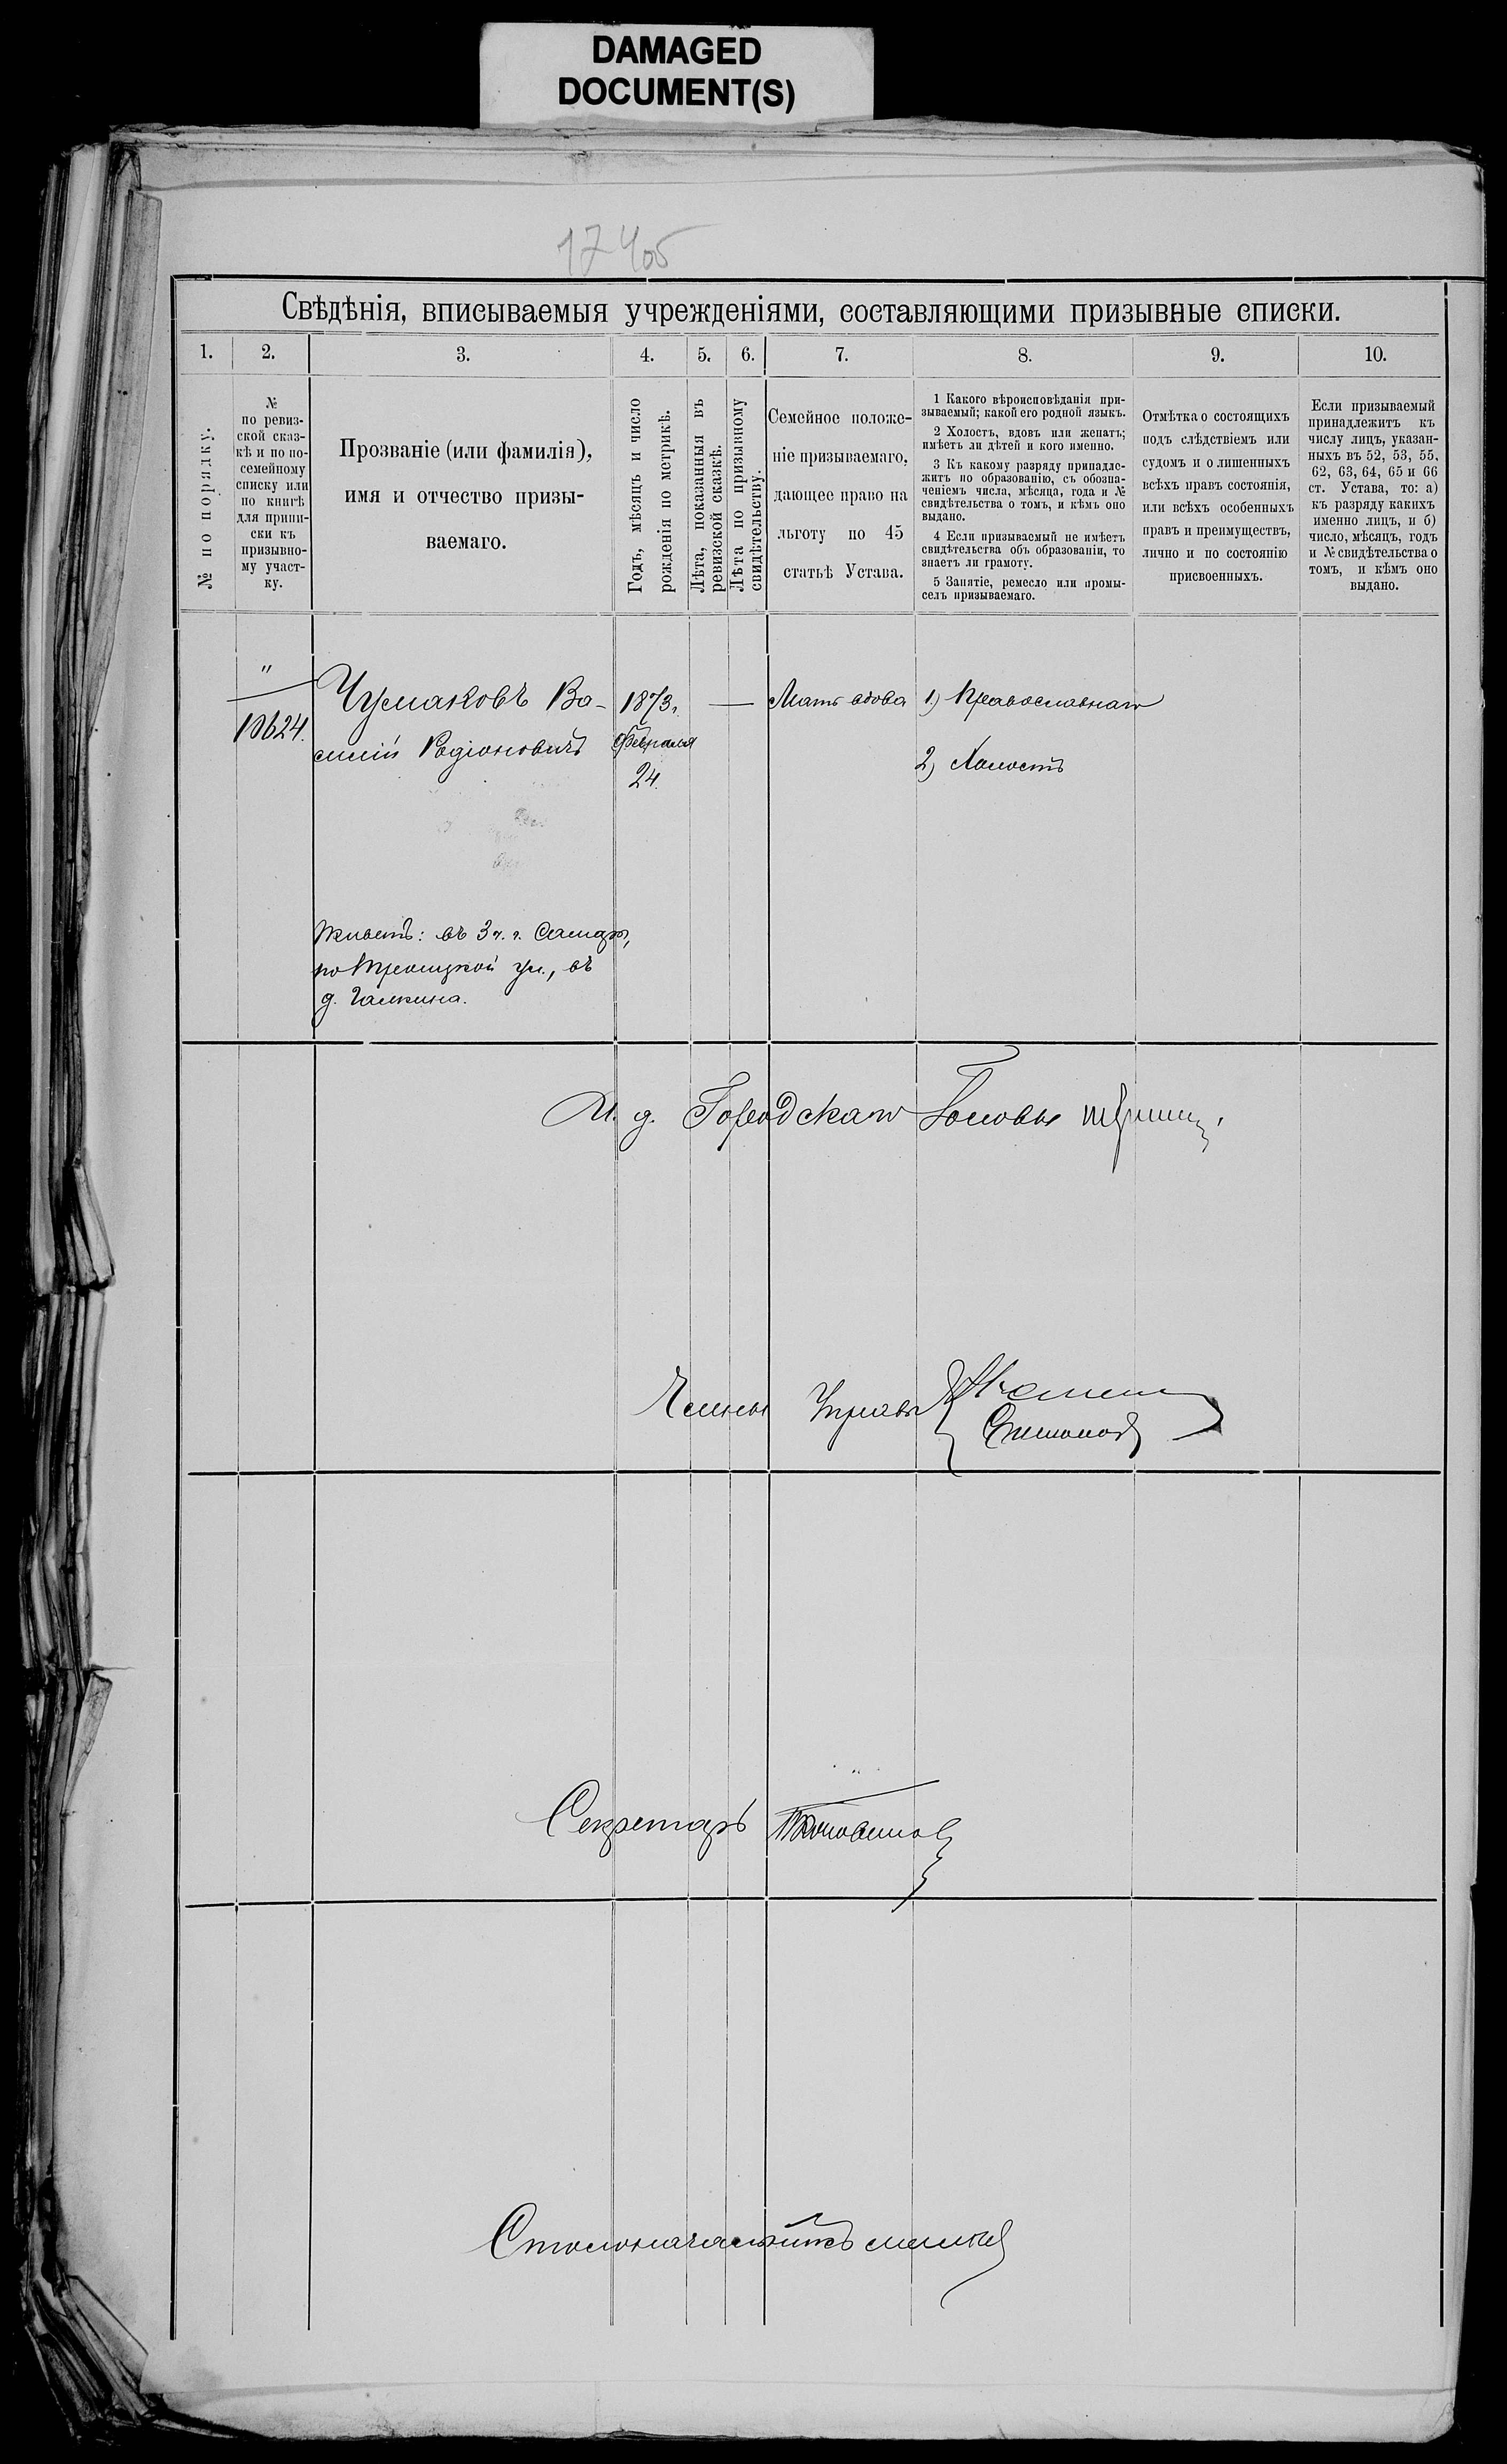 DAMAGED
DOCUMENT(S)
17405
Свѣдѣнія, вписываемыя учрежденіями, составляющими призывные списки.
1. 2. 3. 4. 5. 6. 7. 8. 9. 10.
№ по порядку.
№
по ревиз-
ской сказ-
кѣ и по по-
семейному
списку или
по книгѣ
для припи-
ски къ
призывно-
му участ-
ку.
Прозваніе (или фамилія),
имя и отчество призы-
ваемаго.
Годъ, мѣсяцъ и число
рожденія по метрикѣ.
Лѣта, показанныя въ
ревизской сказкѣ.
Лѣта по призывному
свидѣтельству.
Семейное положе-
ніе призываемаго,
дающее право на
льготу по 45
статьѣ Устава.
1 Какого вѣроисповѣданія при-
зываемый; какой его родной языкъ.
2 Холостъ, вдовъ или женатъ;
имѣетъ ли дѣтей и кого именно.
3 Къ какому разряду принадле-
житъ по образованію, съ обозна-
ченіемъ числа, мѣсяца, года и №
свидѣтельства о томъ, и кѣмъ оно
выдано.
4 Если призываемый не имѣетъ
свидѣтельства объ образованіи, то
знаетъ ли грамоту.
5 Занятіе, ремесло или промы-
селъ призываемаго.
Отмѣтка о состоящихъ
подъ слѣдствіемъ или
судомъ и о лишенныхъ
всѣхъ правъ состоянія,
или всѣхъ особенныхъ
правъ и преимуществъ,
лично и по состоянію
присвоенныхъ.
Если призываемый
принадлежитъ къ
числу лицъ, указан-
ныхъ въ 52, 53, 55,
62, 63, 64, 65 и 66
ст. Устава, то: а)
къ разряду какихъ
именно лицъ, и б)
число, мѣсяцъ, годъ
и № свидѣтельства о
томъ, и кѣмъ оно
выдано.
"
10624.
Чумаковъ Ва-
силій Родіоновичъ
1873.
Февраля
24.
—
Мать вдова
1) Православнаго
2) Холостъ
Живетъ: въ 3 ч. г. Самары,
по Троицкой ул., въ
д. Галкина.
И. д. Городскаго Головы
Члены Управы
Секретарь
Столоначальникъ